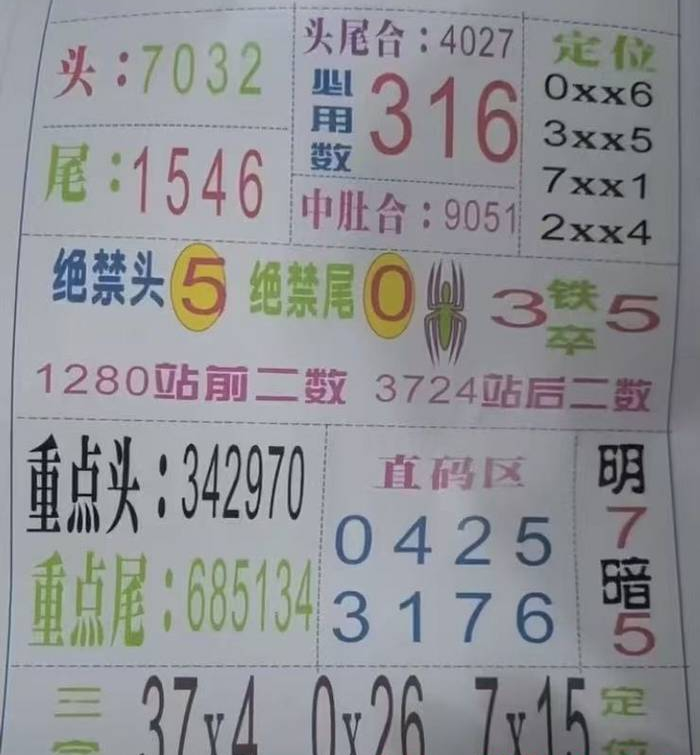 头：7032
尾：1546
头尾合：4027
必用数 316
中肚合：9051
定位
0xx6
3xx5
7xx1
2xx4
绝禁头 5 绝禁尾 0 3 铁卒 5
1280站前二数 3724站后二数
重点头：342970
重点尾：685134
直码区
0425
3176
明
7
暗
5
三字 37x4 0x26 7x15 定位